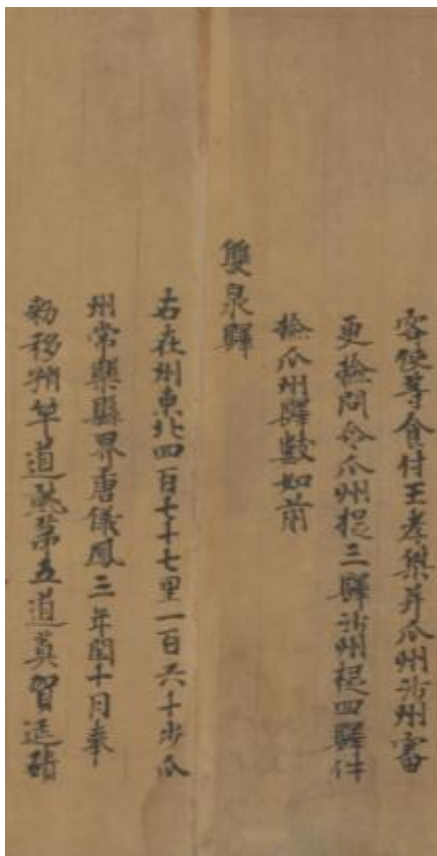 客使等食付王孝傑并瓜州沙州審
更撿問令瓜州捉三驛沙州捉四驛件
撿瓜州驛數如前
雙泉驛
右在州東北四百七十七里一百六十步瓜
州常樂縣界唐儀鳳三年閏十月奉
勑移稍竿道就第五道莫賀延磧